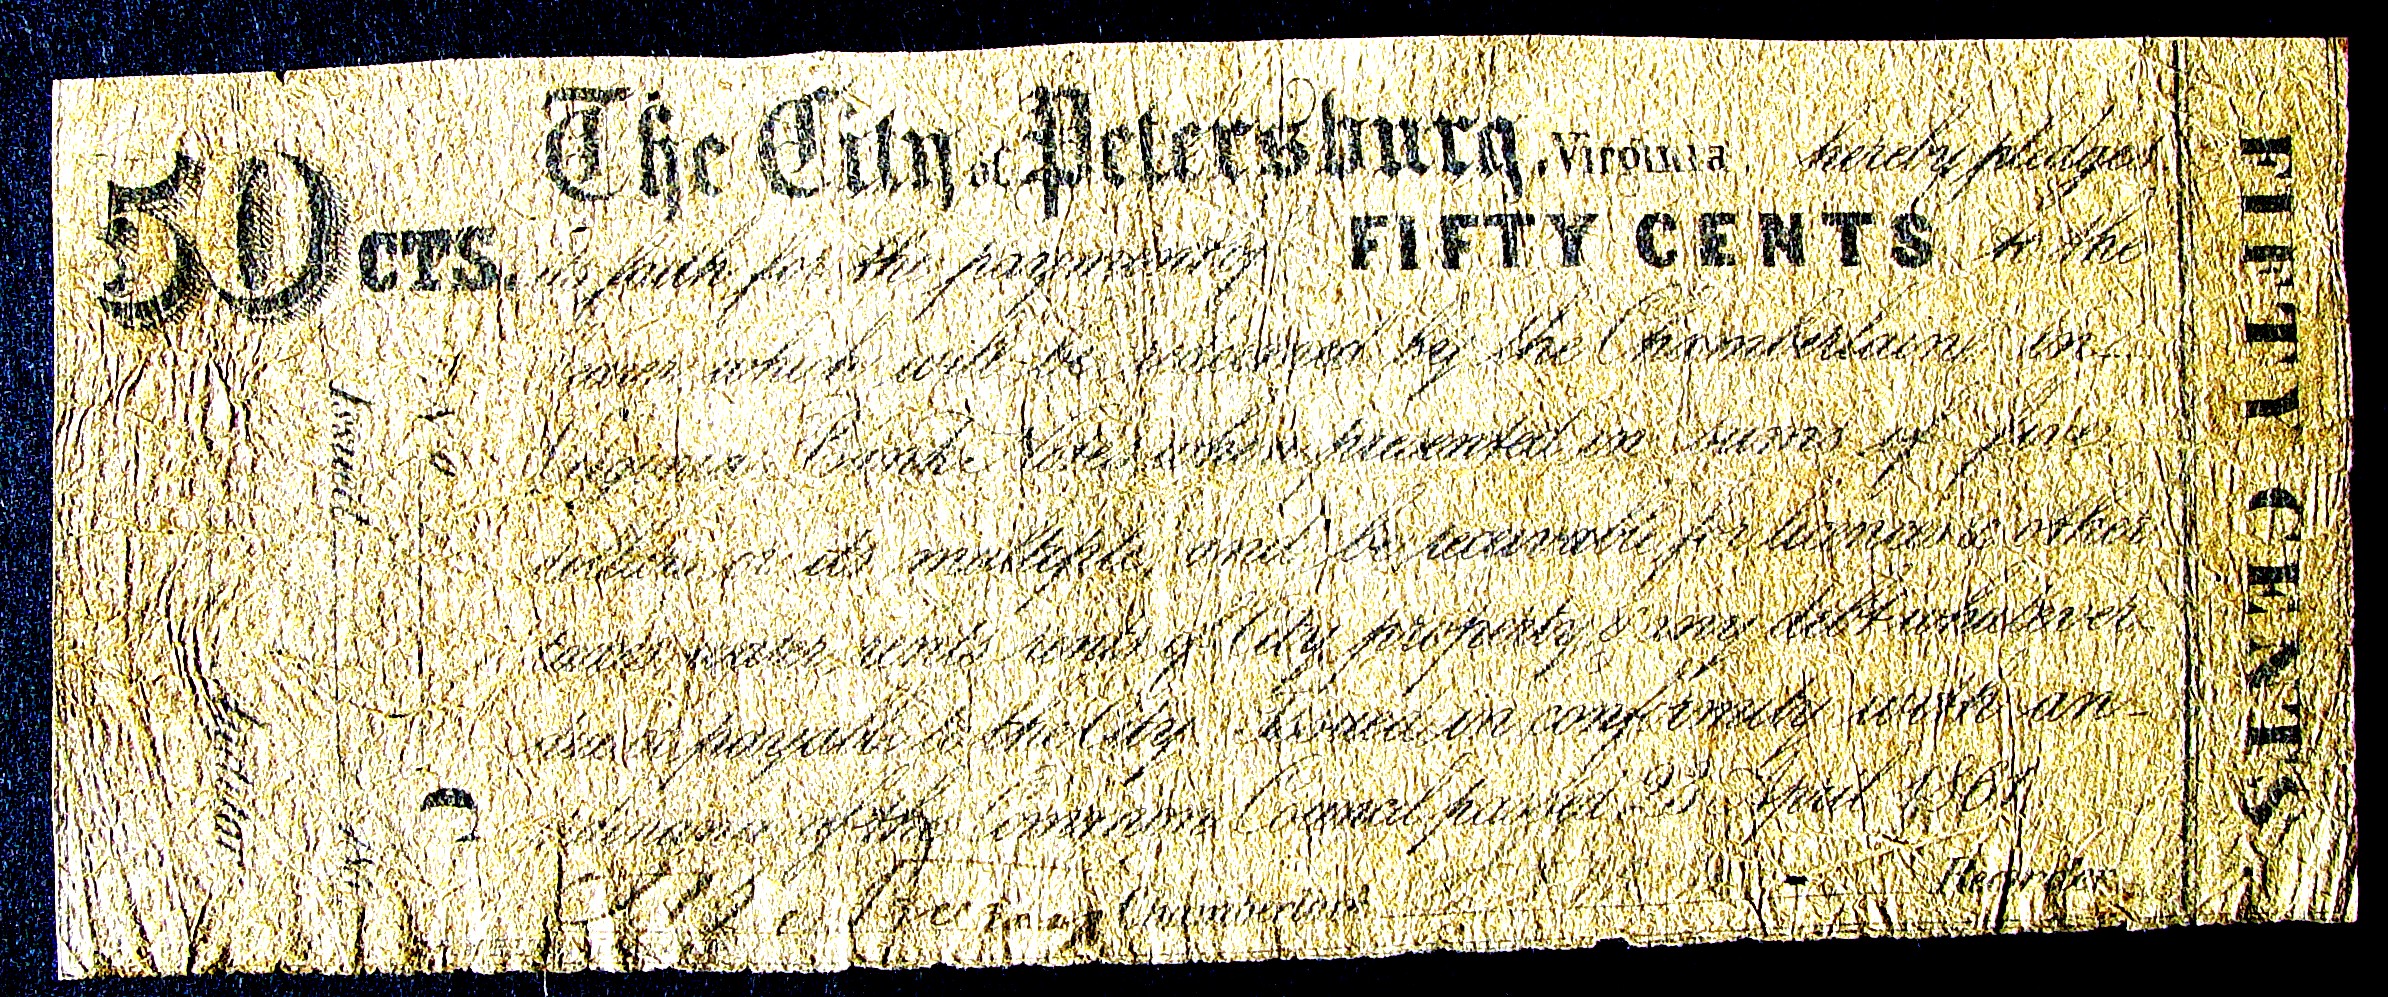 The City of Petersburg, Virginia hereby pledges
50 CTS. its faith for the payment of FIFTY CENTS to the
bearer which will be received by the Chamberlain in
Virginia Bank Notes when presented in sums of five
dollars or its multiple, and be receivable for licenses & other
taxes water rents rents of City property & any debt whatsoever
due or payable to the City Issued in conformity with an
ordinance of the Common Council passed 23 April 1861
Chamberlain
Recorder
No
Issued
Auditor
FIFTY CENTS